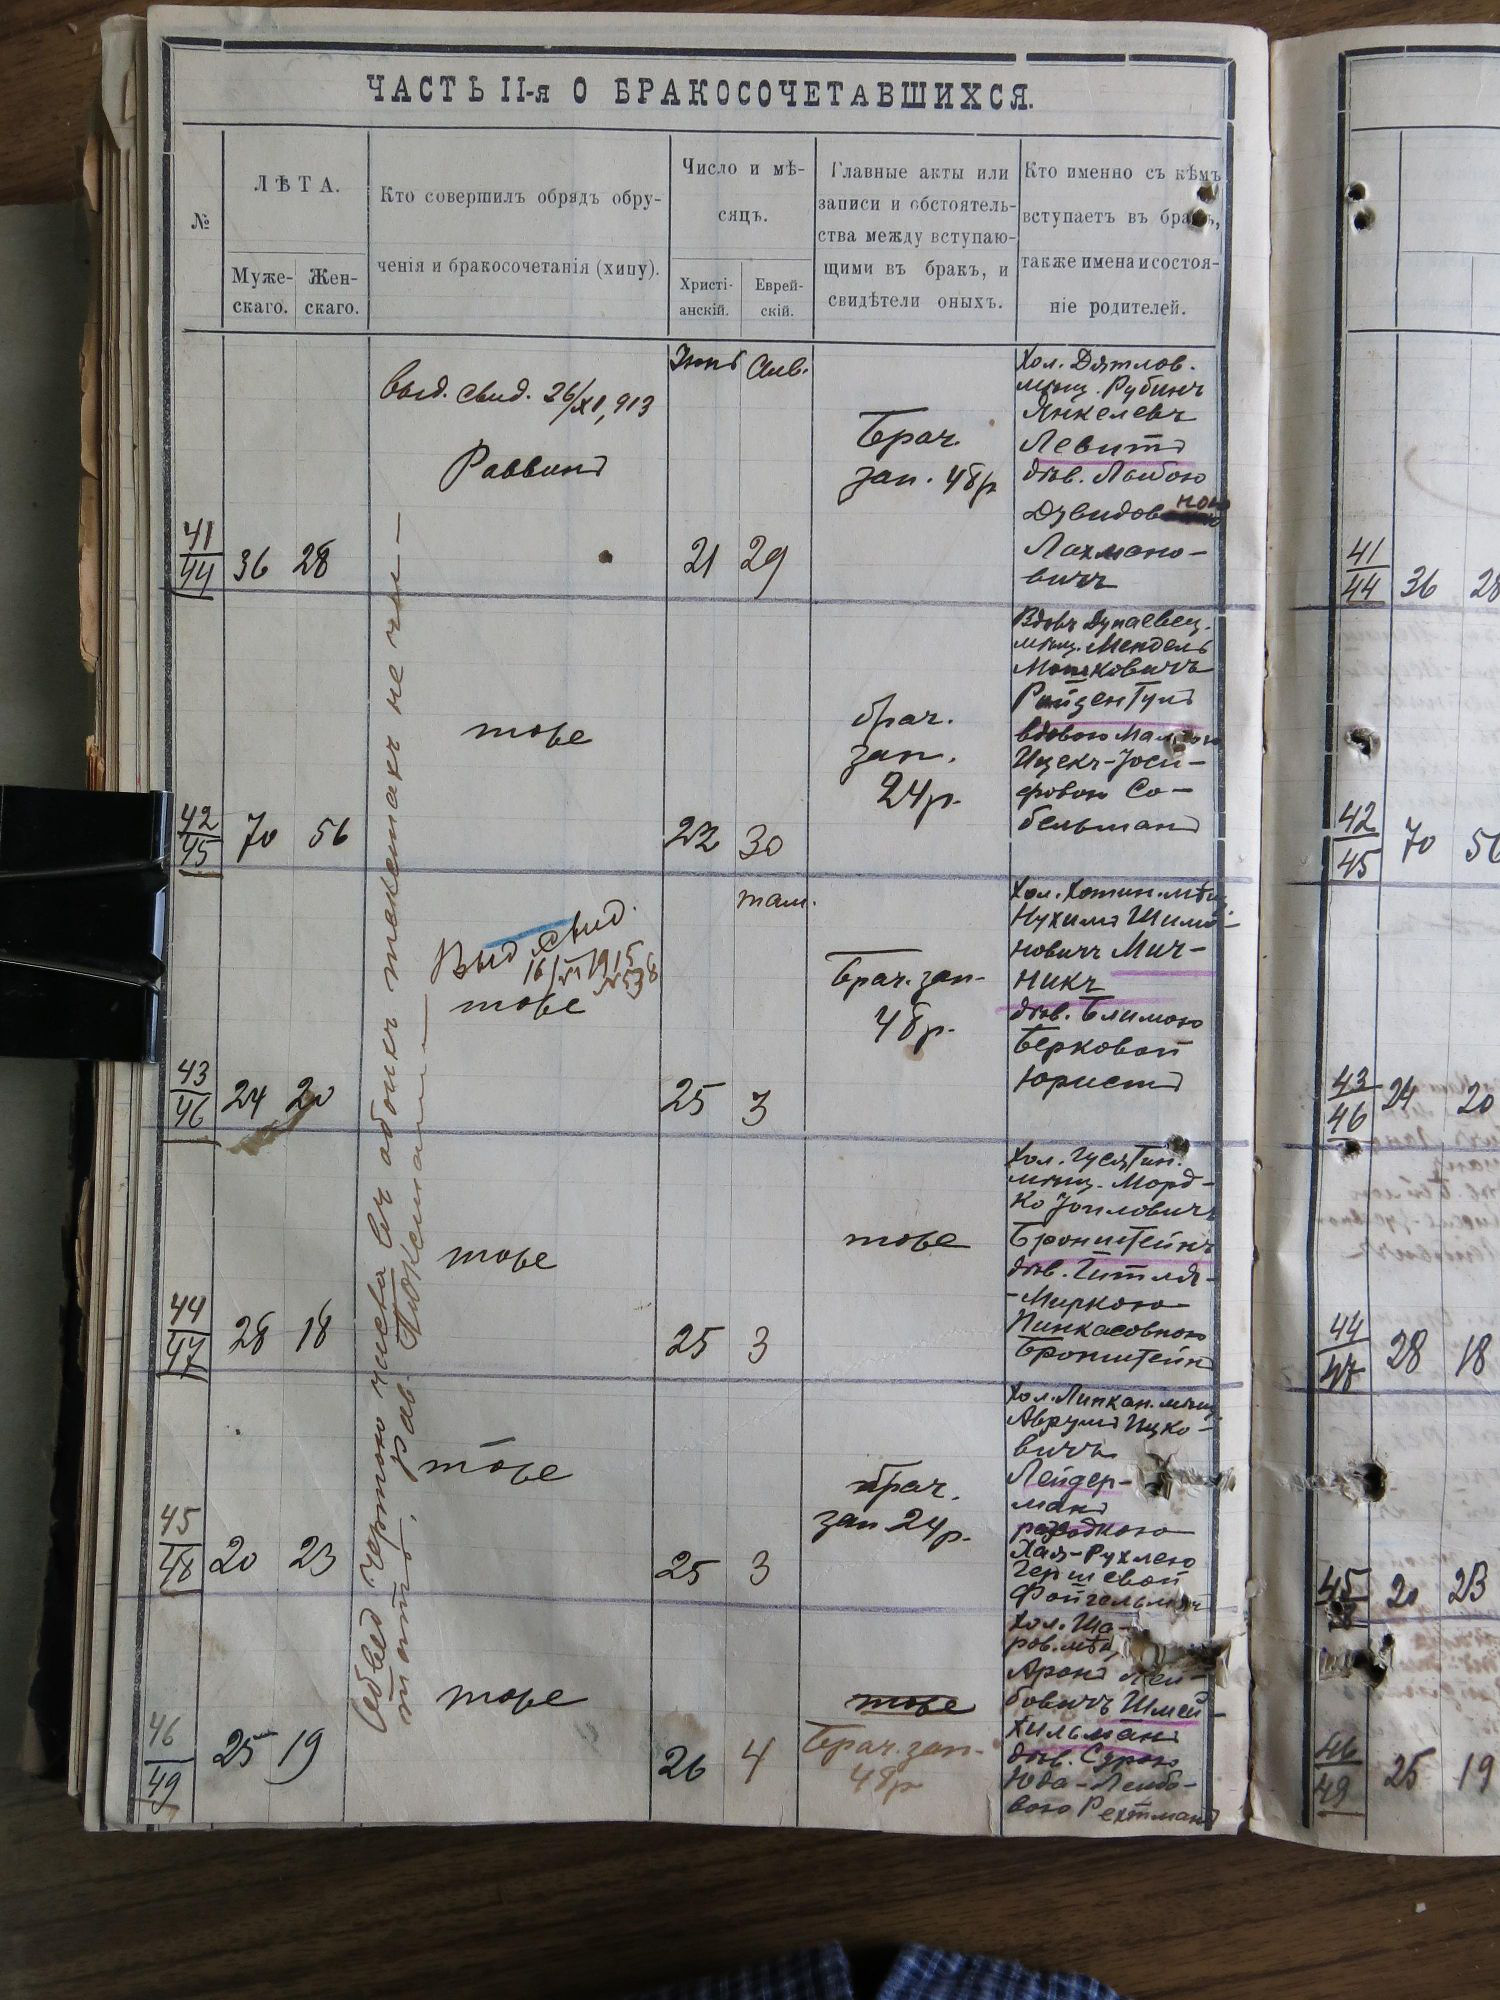 ЧАСТЬ II-я О БРАКОСОЧЕТАВШИХСЯ.
№
ЛѢТА.
Муже-
скаго.
Жен-
скаго.
Кто совершилъ обрядъ обру-
ченія и бракосочетанія (хипу).
Число и мѣ-
сяцъ.
Христі-
анскій.
Еврей-
скій.
Главные акты или
записи и обстоятель-
ства между вступаю-
щими въ бракъ, и
свидѣтели оныхъ.
Кто именно съ кѣмъ
вступаетъ въ бракъ,
также имена и состоя-
ніе родителей.
41
44
36
28
Выд. свид. 26/XI, 913
Раввинъ
Сив.
21
29
Брач.
зап. 48р
Хол. Дятлов.
мѣщ. Рубинъ
Янкелевъ
Левитъ
дѣв.
Дувидовною
Лахмано-
вичъ
42
45
70
56
тоже
22
30
брач.
зап.
24р.
Вдовъ Дунаевец.
мѣщ. Мендель
Мошковичъ
Ройзентулъ
вдовою
Ицекъ-Іоси-
фовою Со-
бельманъ
43
46
24
20
Выд. свид.
16/VI 1915
№538
тоже
там.
25
3
Брач. зап.
48р.
Хол. Хотин. мѣщ.
Нухимъ Шимо-
новичъ Мич-
никъ
дѣв. Блимою
Берковой
Юристъ
44
47
28
18
тоже
25
3
тоже
Хол. Гусятин.
мѣщ. Морд-
ко Іоиловичъ
Бронштейнъ
дѣв. Гитля-
-Миркою
Пинкасовною
Бронштейнъ
45
48
20
23
тоже
25
3
брач.
зап 24р.
Хол. Липкан. мѣщ.
Аврумъ Ицко-
вичъ
Лейдер-
манъ
разводкою
Хая-Рухлею
Гершевой
46
49
25
19
тоже
26
4
тоже
Брач. зап.
48р
Хол. Ша-
ров. мѣщ.
Аронъ Лей-
бовичъ Шмей-
хильманъ
дѣв. Сурою
Юда-Лейбо-
вою Рехтманъ
41
44
36
28
42
45
70
56
43
46
24
20
44
47
28
18
45
48
20
23
46
49
25
19